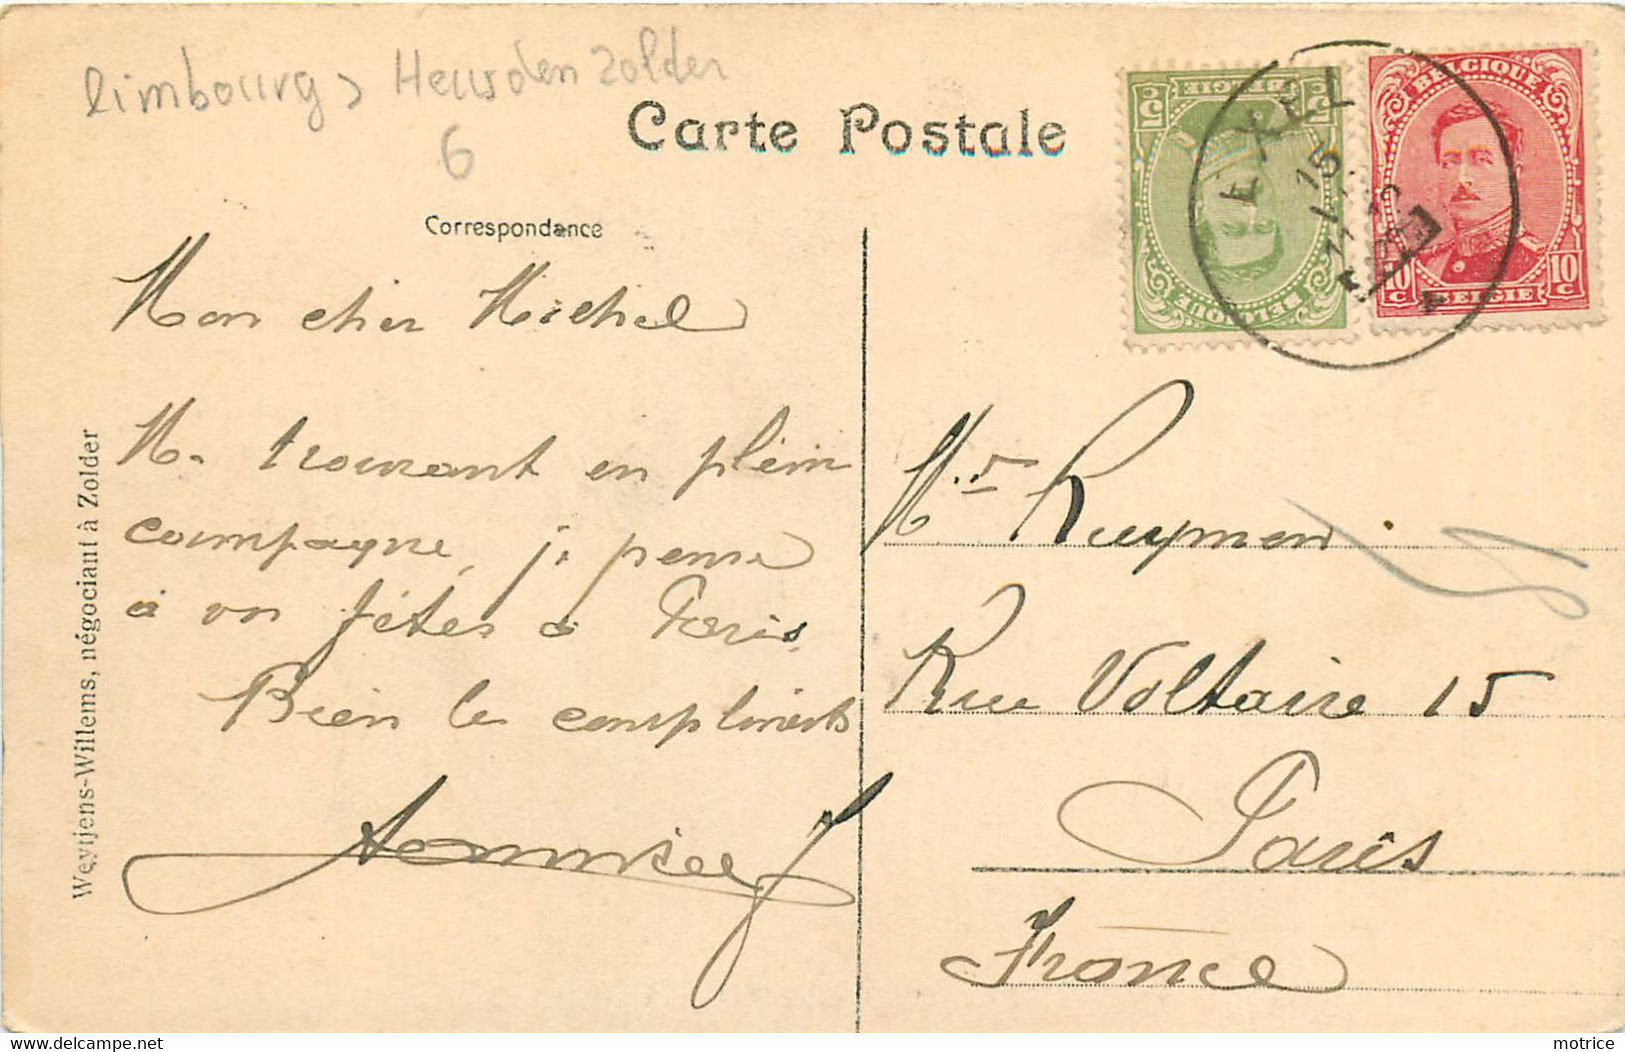 limbourg > Heusden Zolder
6
Carte Postale
Correspondance
Mon cher Michel
Me trouvant en plein
campagne, je pense
à vos fêtes à Paris
Bien les compliments
Weytjens-Willems, négociant à Zolder
Mr Ruymen
Rue Voltaire 15
Paris
France
EXEL
15
BELGIQUE
10 c 10 c
BELGIE
5 BELGIË 5
BELGIQUE
motrice